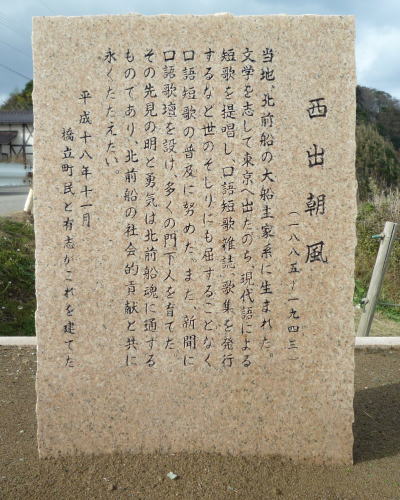 西出朝風
(一八八五〜一九四三
当地、北前船の大船主家系に生まれた。
文学を志して東京へ出たのち現代語による
短歌を提唱し、口語短歌雑誌、歌集を発行
するなど世のそしりにも屈することなく
口語短歌の普及に努めた。また、新聞に
口語歌壇を設け、多くの門下人を育てた
その先見の明と勇気は北前船魂に通ずる
ものであり、北前船の社会的貢献と共に
永くたたえたい。
平成十八年十一月
橋立町民と有志がこれを建てた